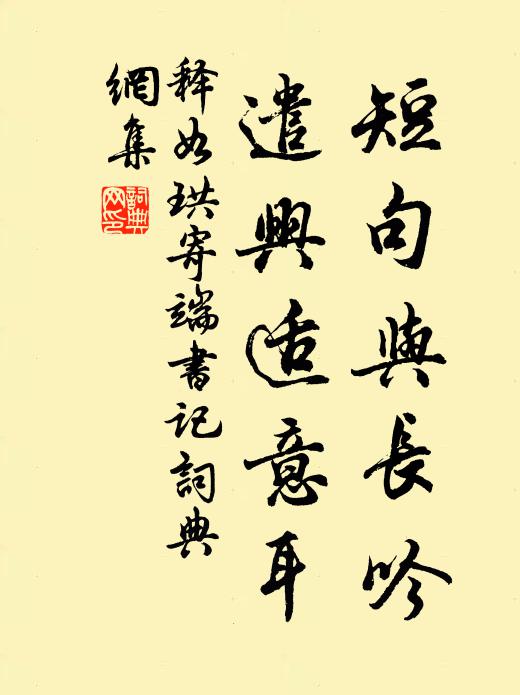 短句與長吟
遣興适意耳
释如珙寄端書记詞典
網集
詞典
网印